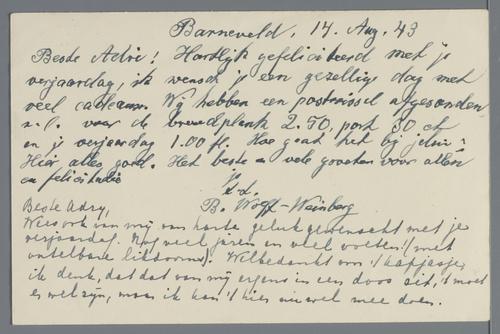 Barneveld, 14. Aug. 43
Beste Adri! Hartlijk gefeliciteerd met je
verjaardag, ik wensch je een gezellig dag met
veel cadeaux. Wij hebben een postwissel afgesonden
voor de broodplank 2.50, port 50 ct
en je verjaardag 1.00 fl. Hoe gaat het bij jelui?
Hier alles goed. Het beste en vele groeten voor allen
en felicitatie
B. Wolff-Weinberg
Beste Adry,
Wees ook van mij van harte geluk gewenscht met je
verjaardag. Nog veel jaren en veel voeten! (met
ontelbare likdoorns). Welbedankt voor 't kapjasje,
ik denk, dat dat van mij ergens in een doos zit, 't moet
er wel zijn, maar ik kan 't hier nu wel mee doen.